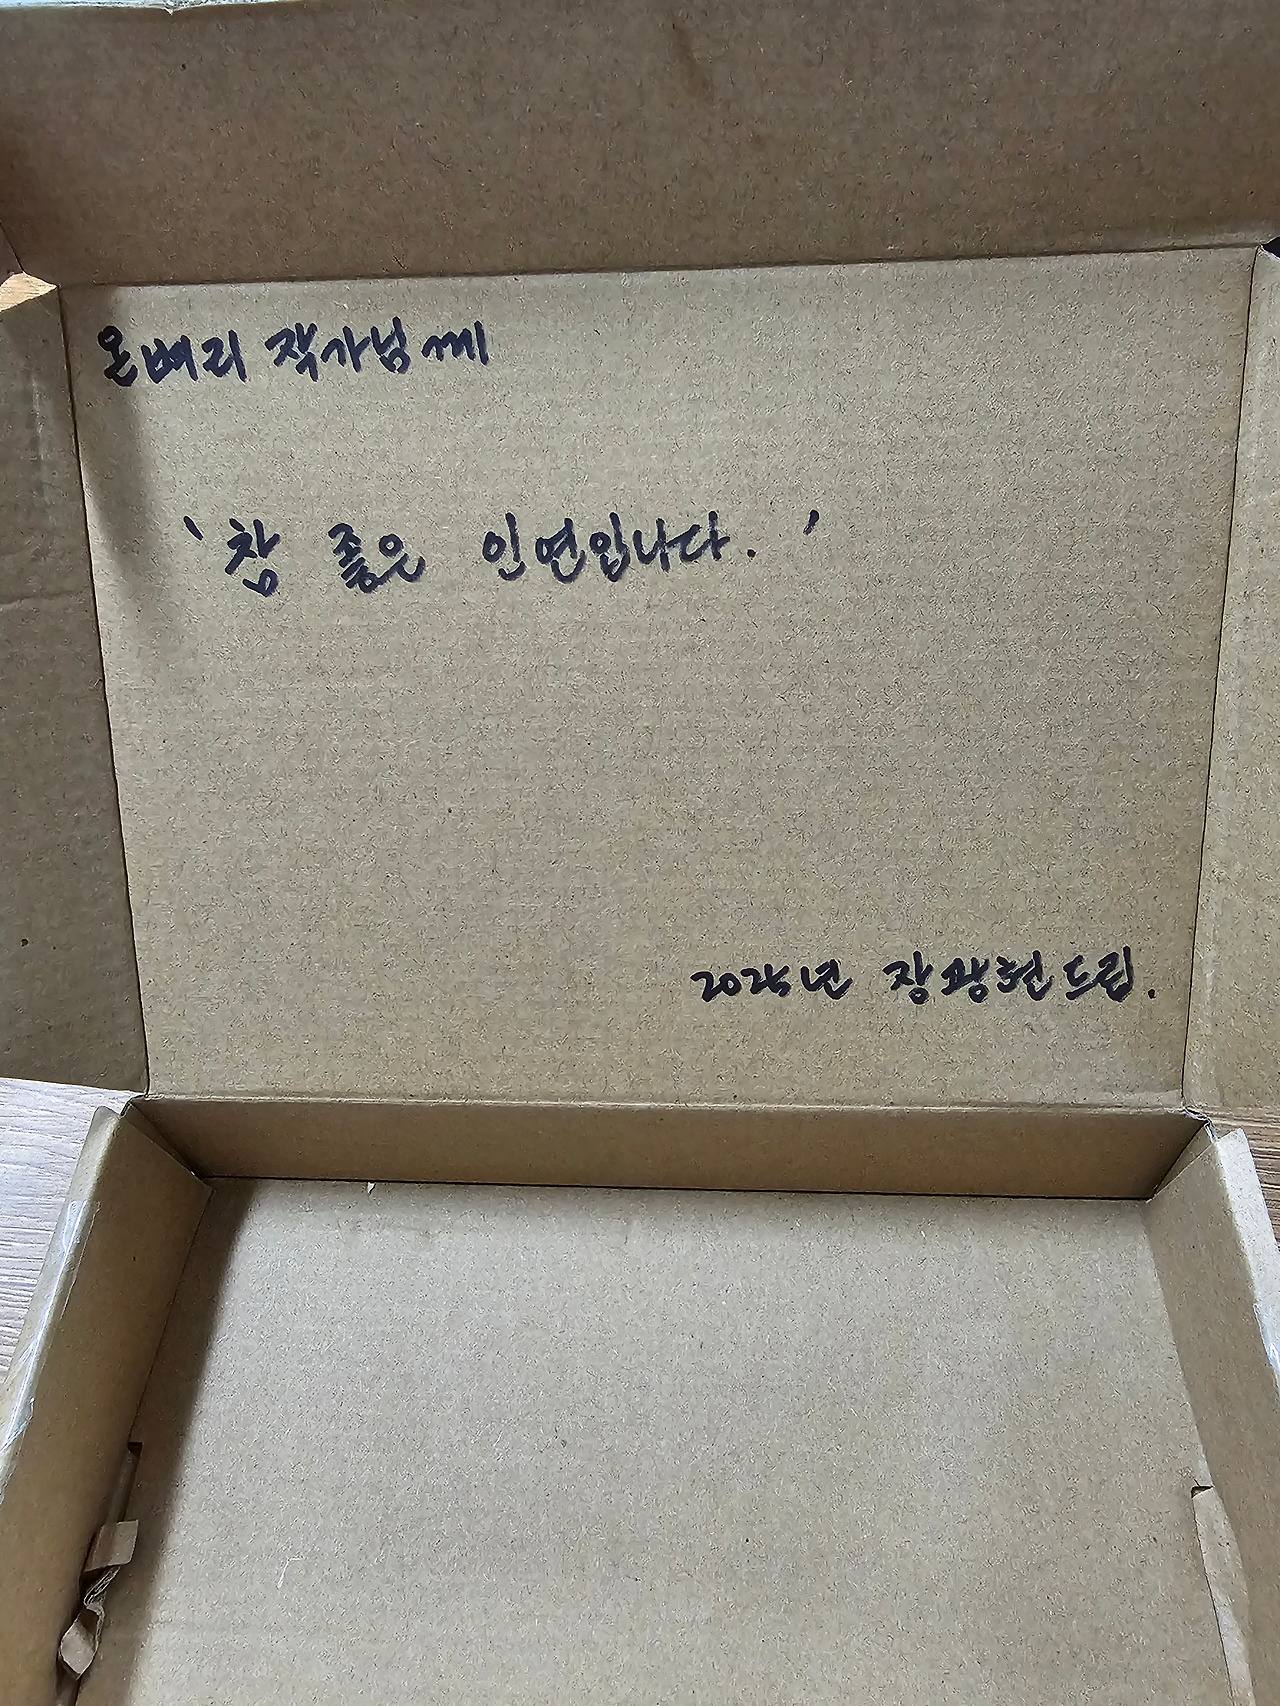 온벼리 작가님께
' 참 좋은 인연입니다. '
2025년 장광현 드림.